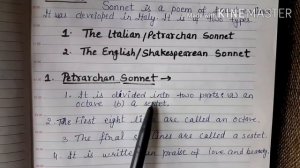 Sonnet is a poem of
It was developed in Italy. It is
types
1. The Italian/Petrarchan Sonnet
2. The English/Shakespearean Sonnet
1. Petrarchan Sonnet →
1. It is divided into two parts: (a) an
octave (b) a sestet.
2. The First eight lines are called an octave.
3. The final lines are called a sestet.
4. It is written in praise of love and beauty.
Made with KINEMASTER